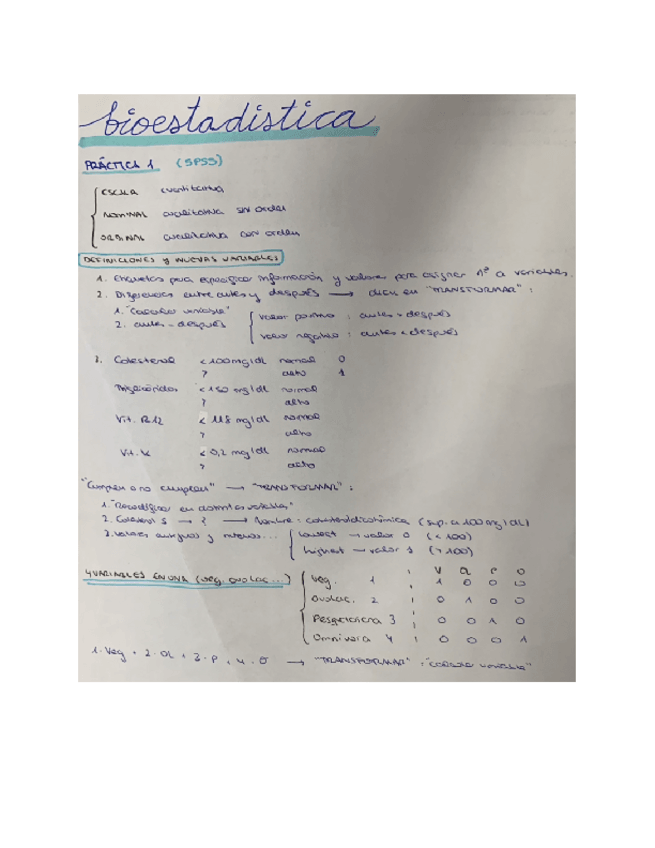 bioestadistica
PRÁCTICA 1 (SPSS)
ESCALA cuantitativa
NOMINAL cualitativa sin orden
ORDINAL cualitativa con orden
DEFINICIONES y NUEVAS VARIABLES
1. Etiquetas para especificar información y valores para asignar nº a variables.
2. Diferencias entre antes y después → click en "TRANSFORMAR" :
1. "Calcular variable"
2. antes - después
valor positivo : antes > después
valor negativo : antes < después
3. Colesterol < 100 mg/dl normal 0
? alto 1
Triglicéridos < 150 mg/dl normal
? alto
Vit. B12 < 118 mg/dl normal
? alto
Vit. K < 0,2 mg/dl normal
? alto
"Cumplen o no cumplen" → "TRANSFORMAR" :
1. "Recodificar en distintas variables"
2. Colesterol 5 → ? → Nombre : colesteroldicotómica (sup. a 100 mg/dL)
3. Valores antiguos y nuevos...
lowest → valor 0 (< 100)
highest → valor 1 (> 100)
4 VARIABLES EN UNA (veg, ovolac...)
V OL P O
Veg. 1 : 1 0 0 0
Ovolac. 2 : 0 1 0 0
Pesquetariana 3 : 0 0 1 0
Omnívora 4 : 0 0 0 1
1. Veg + 2. OL + 3. P + 4. O → "TRANSFORMAR" : "calcular variable"